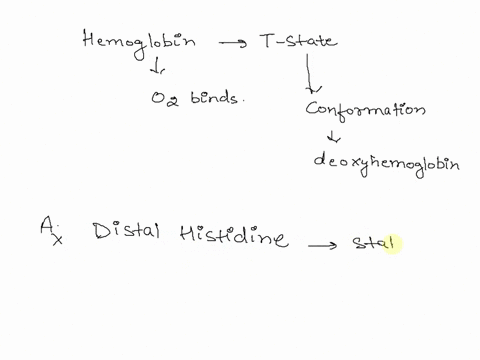 Hemoglobin → T-state
O2 binds.
Conformation
deoxyhemoglobin
A. Distal Histidine → stal